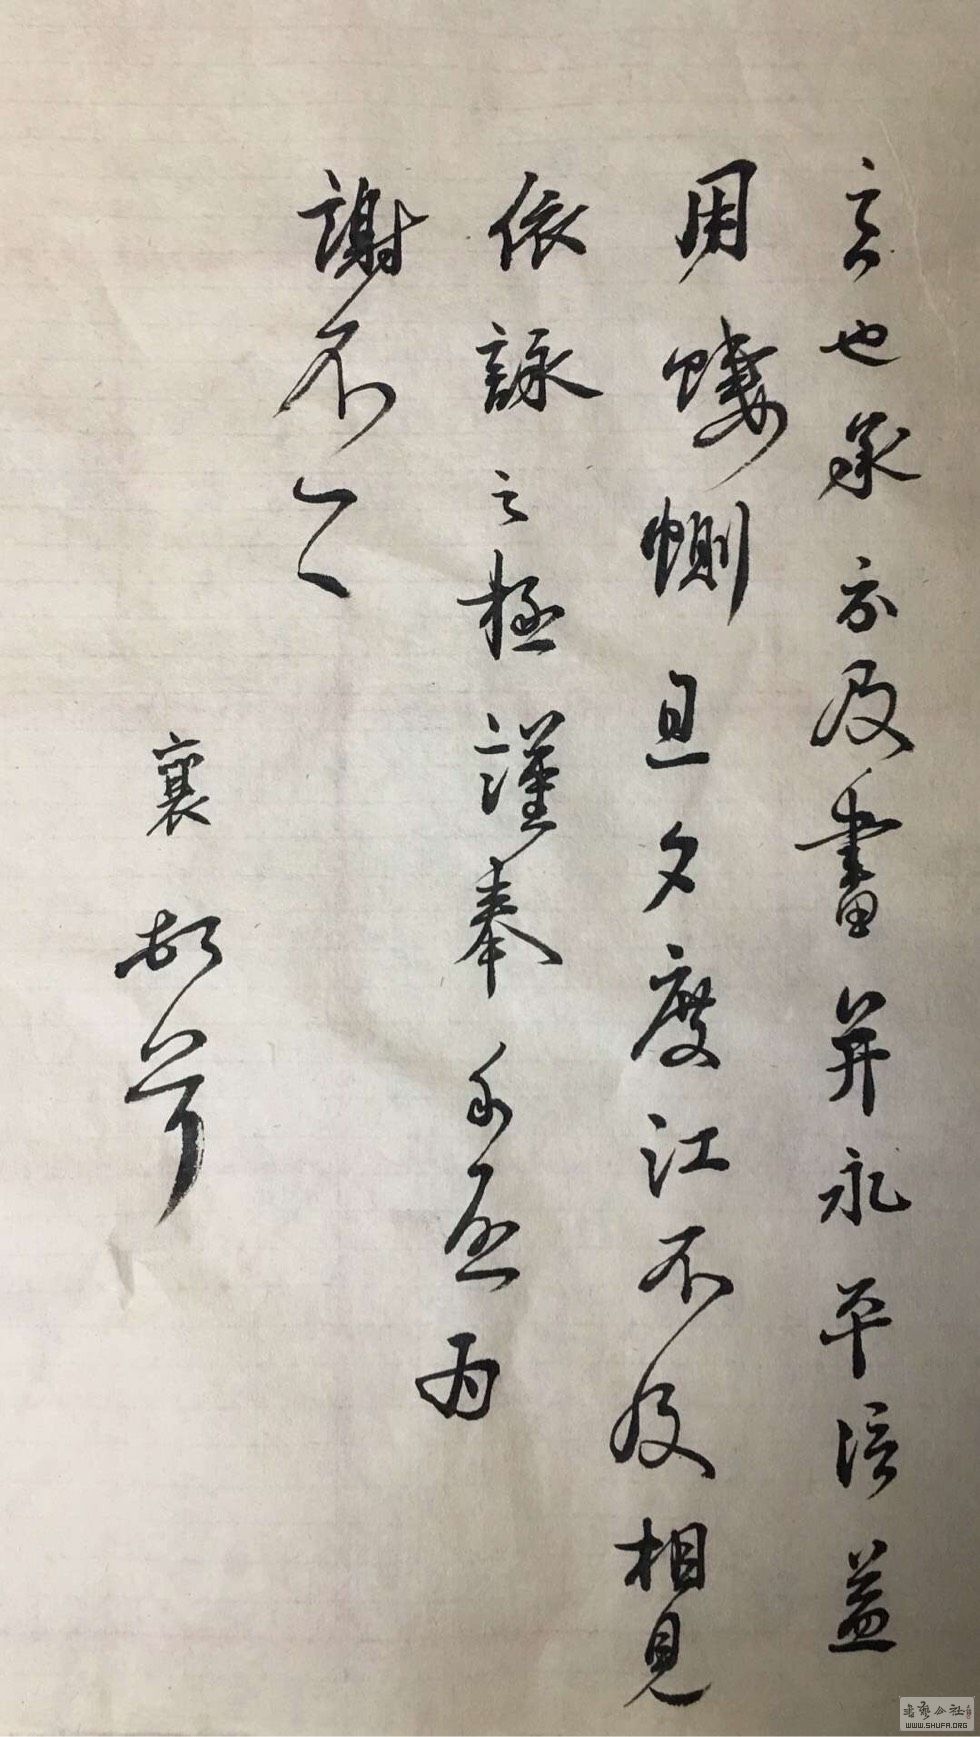 言也承示及書并永平信益
用悽惻旦夕度江不及相見
依詠之極謹奉手啟為
謝不一一
襄頓首
書藝公社
WWW.SHUFA.ORG